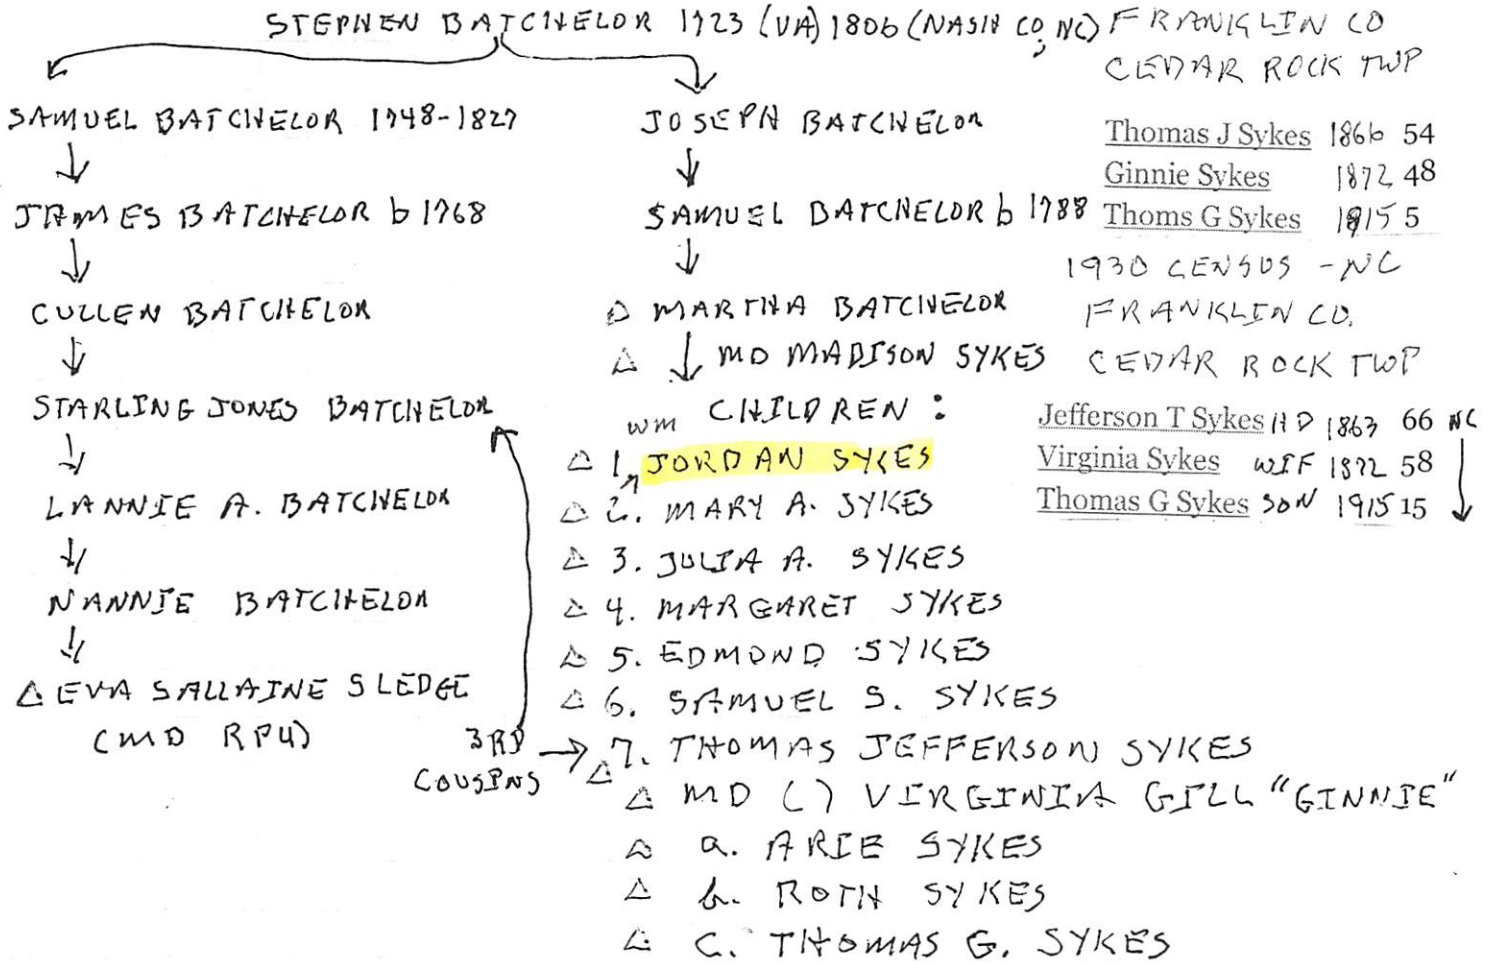 STEPHEN BATCHELOR 1723 (VA) 1806 (NASH CO, NC)
SAMUEL BATCHELOR 1748-1827
↓
JAMES BATCHELOR b 1768
↓
CULLEN BATCHELOR
↓
STARLING JONES BATCHELOR
↓
LANNIE A. BATCHELOR
↓
NANNIE BATCHELOR
↓
△ EVA SALLAINE SLEDGE
(MD RPU)
3RD
COUSINS
JOSEPH BATCHELOR
↓
SAMUEL BATCHELOR b 1788
↓
△ MARTHA BATCHELOR
△ ↓ MD MADISON SYKES
WM CHILDREN:
△ 1. JORDAN SYKES
△ 2. MARY A. SYKES
△ 3. JULIA A. SYKES
△ 4. MARGARET SYKES
△ 5. EDMOND SYKES
△ 6. SAMUEL S. SYKES
△ 7. THOMAS JEFFERSON SYKES
△ MD ( ) VIRGINIA GILL "GINNIE"
△ a. ARIE SYKES
△ b. ROTH SYKES
△ C. THOMAS G. SYKES
FRANKLIN CO
CEDAR ROCK TWP
Thomas J Sykes 1866 54
Ginnie Sykes 1872 48
Thoms G Sykes 1915 5
1930 CENSUS - NC
FRANKLIN CO.
CEDAR ROCK TWP
Jefferson T Sykes HD 1863 66 NC
Virginia Sykes WIF 1872 58
Thomas G Sykes SON 1915 15